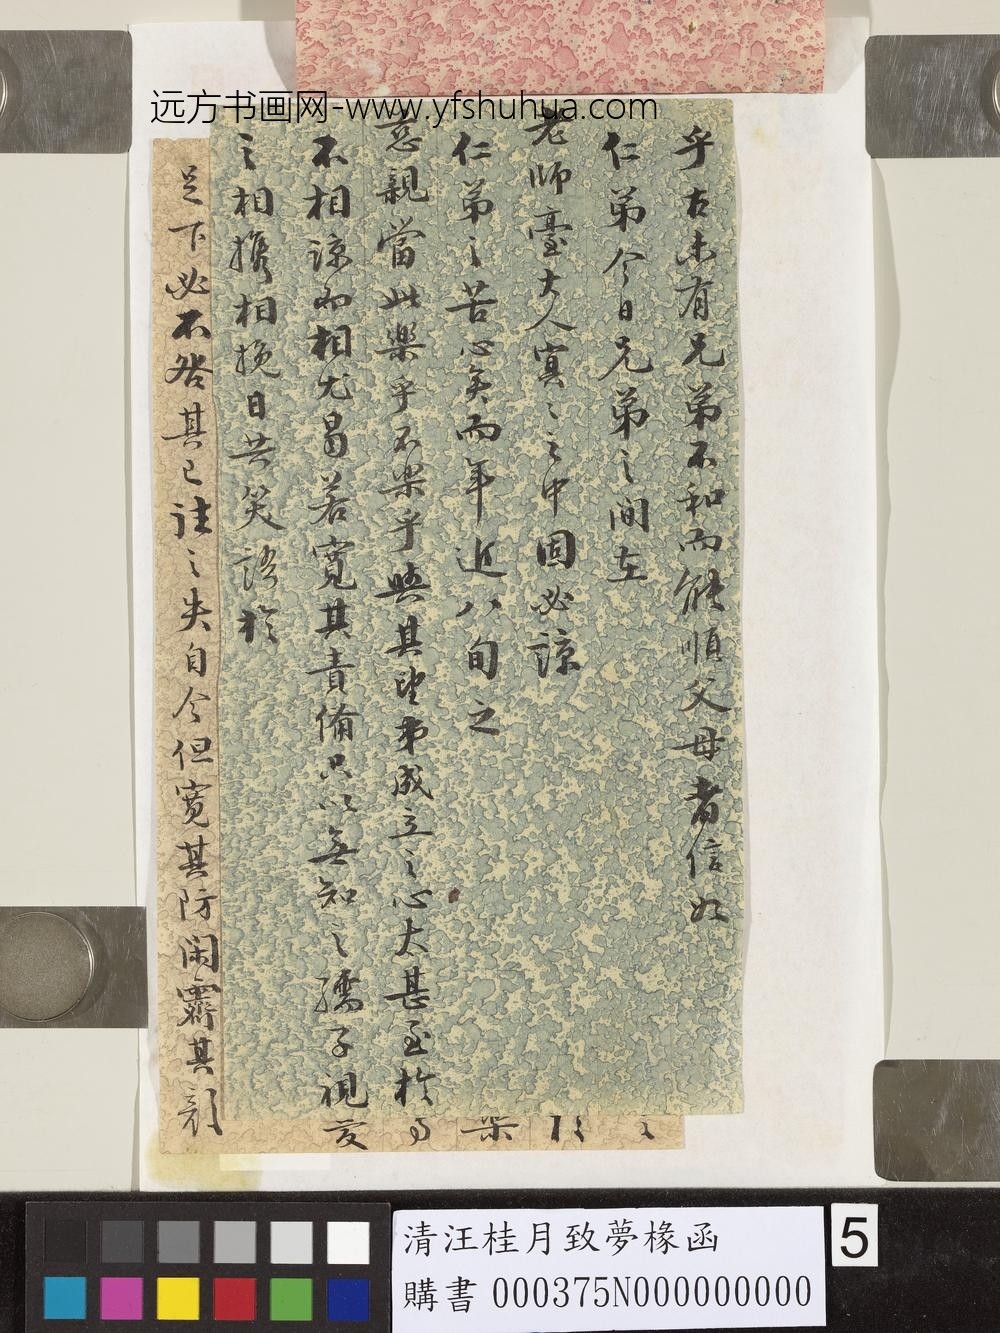 远方书画网-www.yfshuhua.com
乎古未有兄弟不和而能順父母者信如
仁弟今日兄弟之間在
老師臺大人冥之之中固必諒
仁弟之苦心矣而年近八旬之
慈親當此樂乎不樂乎與其望弟成立之心太甚至於
不相諒而相尤曷若寬其責備只以無知之孺子視
之相攜相挽日共笑語於
足下必不咎其已往之失自今但寬其防閑霽其顏
清汪桂月致夢椽函
購書 000375N000000000
5